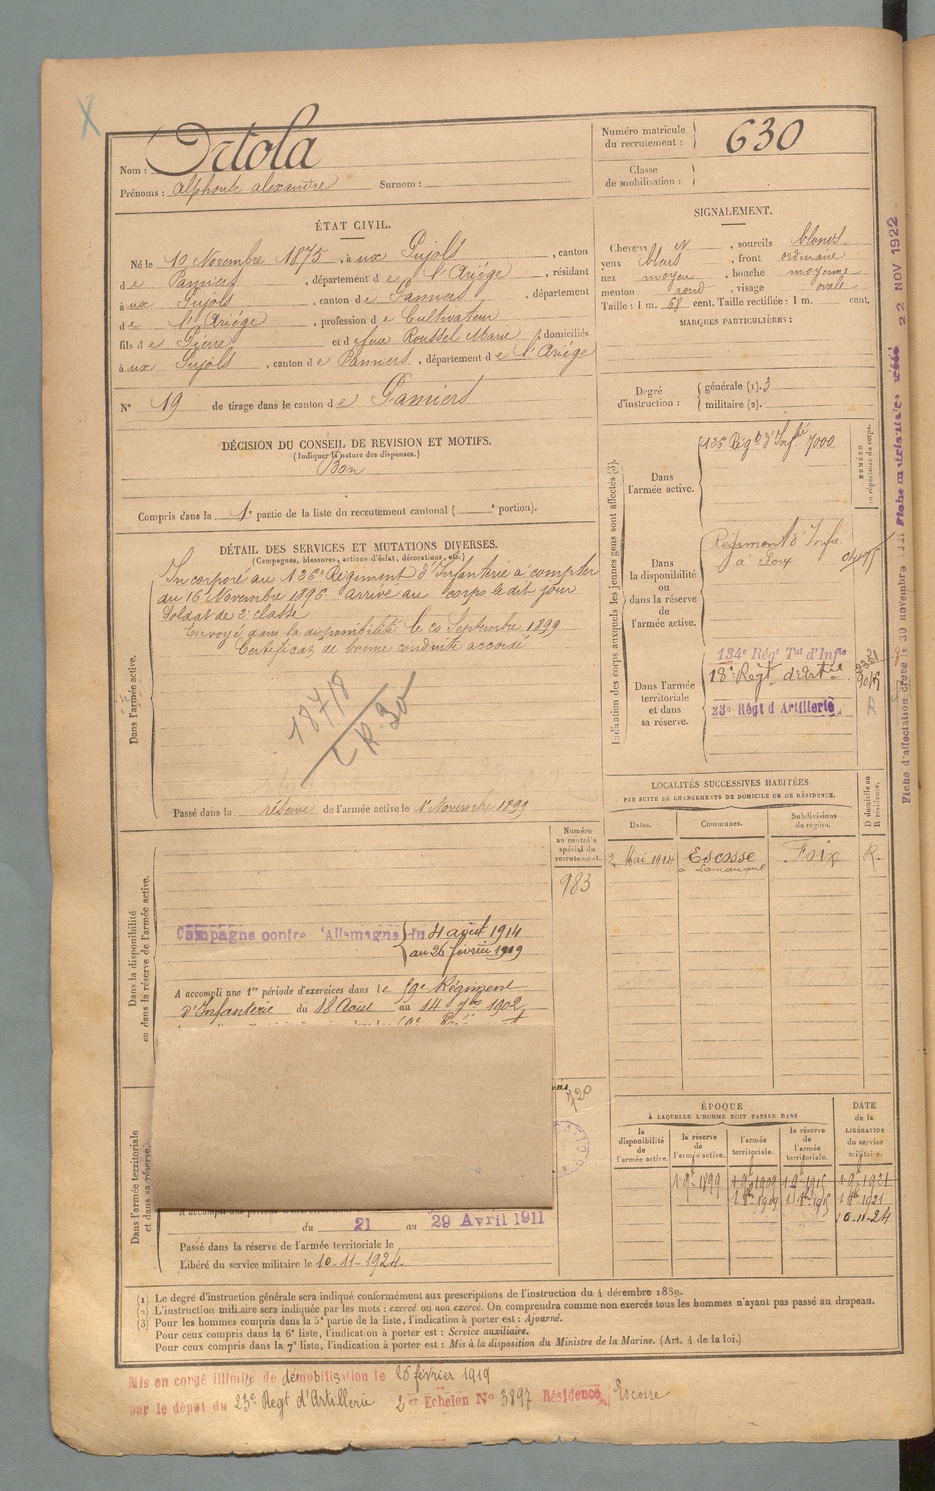 Nom : Ortola
Prénoms : alphonse alexandre Surnom :
Numéro matricule du recrutement : 630
Classe de mobilisation :
ÉTAT CIVIL.
Né le 10 Novembre 1875, à ux Pujols, canton
d e Pamiers, département d e l'Ariège, résidant
à ux Pujols, canton d e Pamiers, département
d e l'Ariège, profession d e Cultivateur
fils d e Pierre et d e feue Roussel Marie, domiciliés
à ux Pujols, canton d e Pamiers, département d e l'Ariège
N° 19 de tirage dans le canton d e Pamiers
SIGNALEMENT.
Cheveux et, sourcils blonds
yeux bleus, front ordinaire
nez moyen, bouche moyenne
menton rond, visage ovale
Taille : 1 m. 68 cent. Taille rectifiée : 1 m. cent.
MARQUES PARTICULIÈRES :
Degré d'instruction : générale (1). 3
militaire (2).
DÉCISION DU CONSEIL DE REVISION ET MOTIFS.
(Indiquer la nature des dispenses.)
Bon
Compris dans la 1e partie de la liste du recrutement cantonal ( e portion).
DÉTAIL DES SERVICES ET MUTATIONS DIVERSES.
(Campagnes, blessures, actions d'éclat, décorations, etc.)
Dans l'armée active.
Incorporé au 126e Régiment d'Infanterie à compter
du 16 Novembre 1896 arrivé au corps le dit jour
Soldat de 2e classe
Envoyé dans la disponibilité le 20 Septembre 1899
Certificat de bonne conduite accordé
18718
R 30
Passé dans la réserve de l'armée active le 1er Novembre 1899
Indication des corps auxquels les jeunes gens sont affectés (3).
NUMÉRO au répertoire du corps.
Dans l'armée active.
126 Régt d'Infie 7000
Dans la disponibilité ou dans la réserve de l'armée active.
Régiment d'Infie
à Foix
Dans l'armée territoriale et dans sa réserve.
134e Régt Tal d'Infie
18e Régt d'Artie
23e Régt d Artillerie
LOCALITÉS SUCCESSIVES HABITÉES
PAR SUITE DE CHANGEMENTS DE DOMICILE OU DE RÉSIDENCE.
Dates. Communes. Subdivisions de région. D domicile ou R résidence.
2 Mai 1914 Escosse Foix R.
à Lamarquel
Dans la disponibilité ou dans la réserve de l'armée active.
Numéro au contrôle spécial du recrutement.
983
Campagne contre l'Allemagne du 4 août 1914
au 26 février 1919
A accompli une 1re période d'exercices dans le 59e Régiment
d'Infanterie du 18 Aout au 14 7bre 1902
720
Dans l'armée territoriale et dans sa réserve.
du 21 au 29 Avril 1911
Passé dans la réserve de l'armée territoriale le
Libéré du service militaire le 10-11-1924.
ÉPOQUE
À LAQUELLE L'HOMME DOIT PASSER DANS
la disponibilité de l'armée active.
la réserve de l'armée active.
l'armée territoriale.
la réserve de l'armée territoriale.
DATE de la LIBÉRATION du service militaire.
1 9bre 1899 1 9bre 1909 1 9bre 1915 1 9bre 1921
10-11-24
(1) Le degré d'instruction générale sera indiqué conformément aux prescriptions de l'instruction du 4 décembre 1889.
(2) L'instruction militaire sera indiquée par les mots : exercé ou non exercé. On comprendra comme non exercés tous les hommes n'ayant pas passé au drapeau.
(3) Pour les hommes compris dans la 5e partie de la liste, l'indication à porter est : Ajourné.
Pour ceux compris dans la 6e liste, l'indication à porter est : Service auxiliaire.
Pour ceux compris dans la 7e liste, l'indication à porter est : Mis à la disposition du Ministre de la Marine. (Art. 4 de la loi.)
Mis en congé illimité de démobilisation le 26 février 1919
par le dépot du 23e Regt d'Artillerie 2er Echelon N° 3897 Résidence Escosse
22 NOV 1922